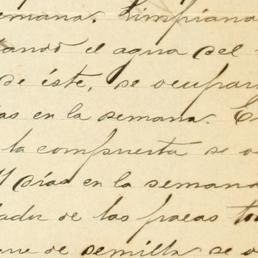 semana. Limpiana
tando el agua del
de éste, se ocupar
as en la semana.
la compuerta se o
días en la semana
ador de las pozas to
de semilla se o